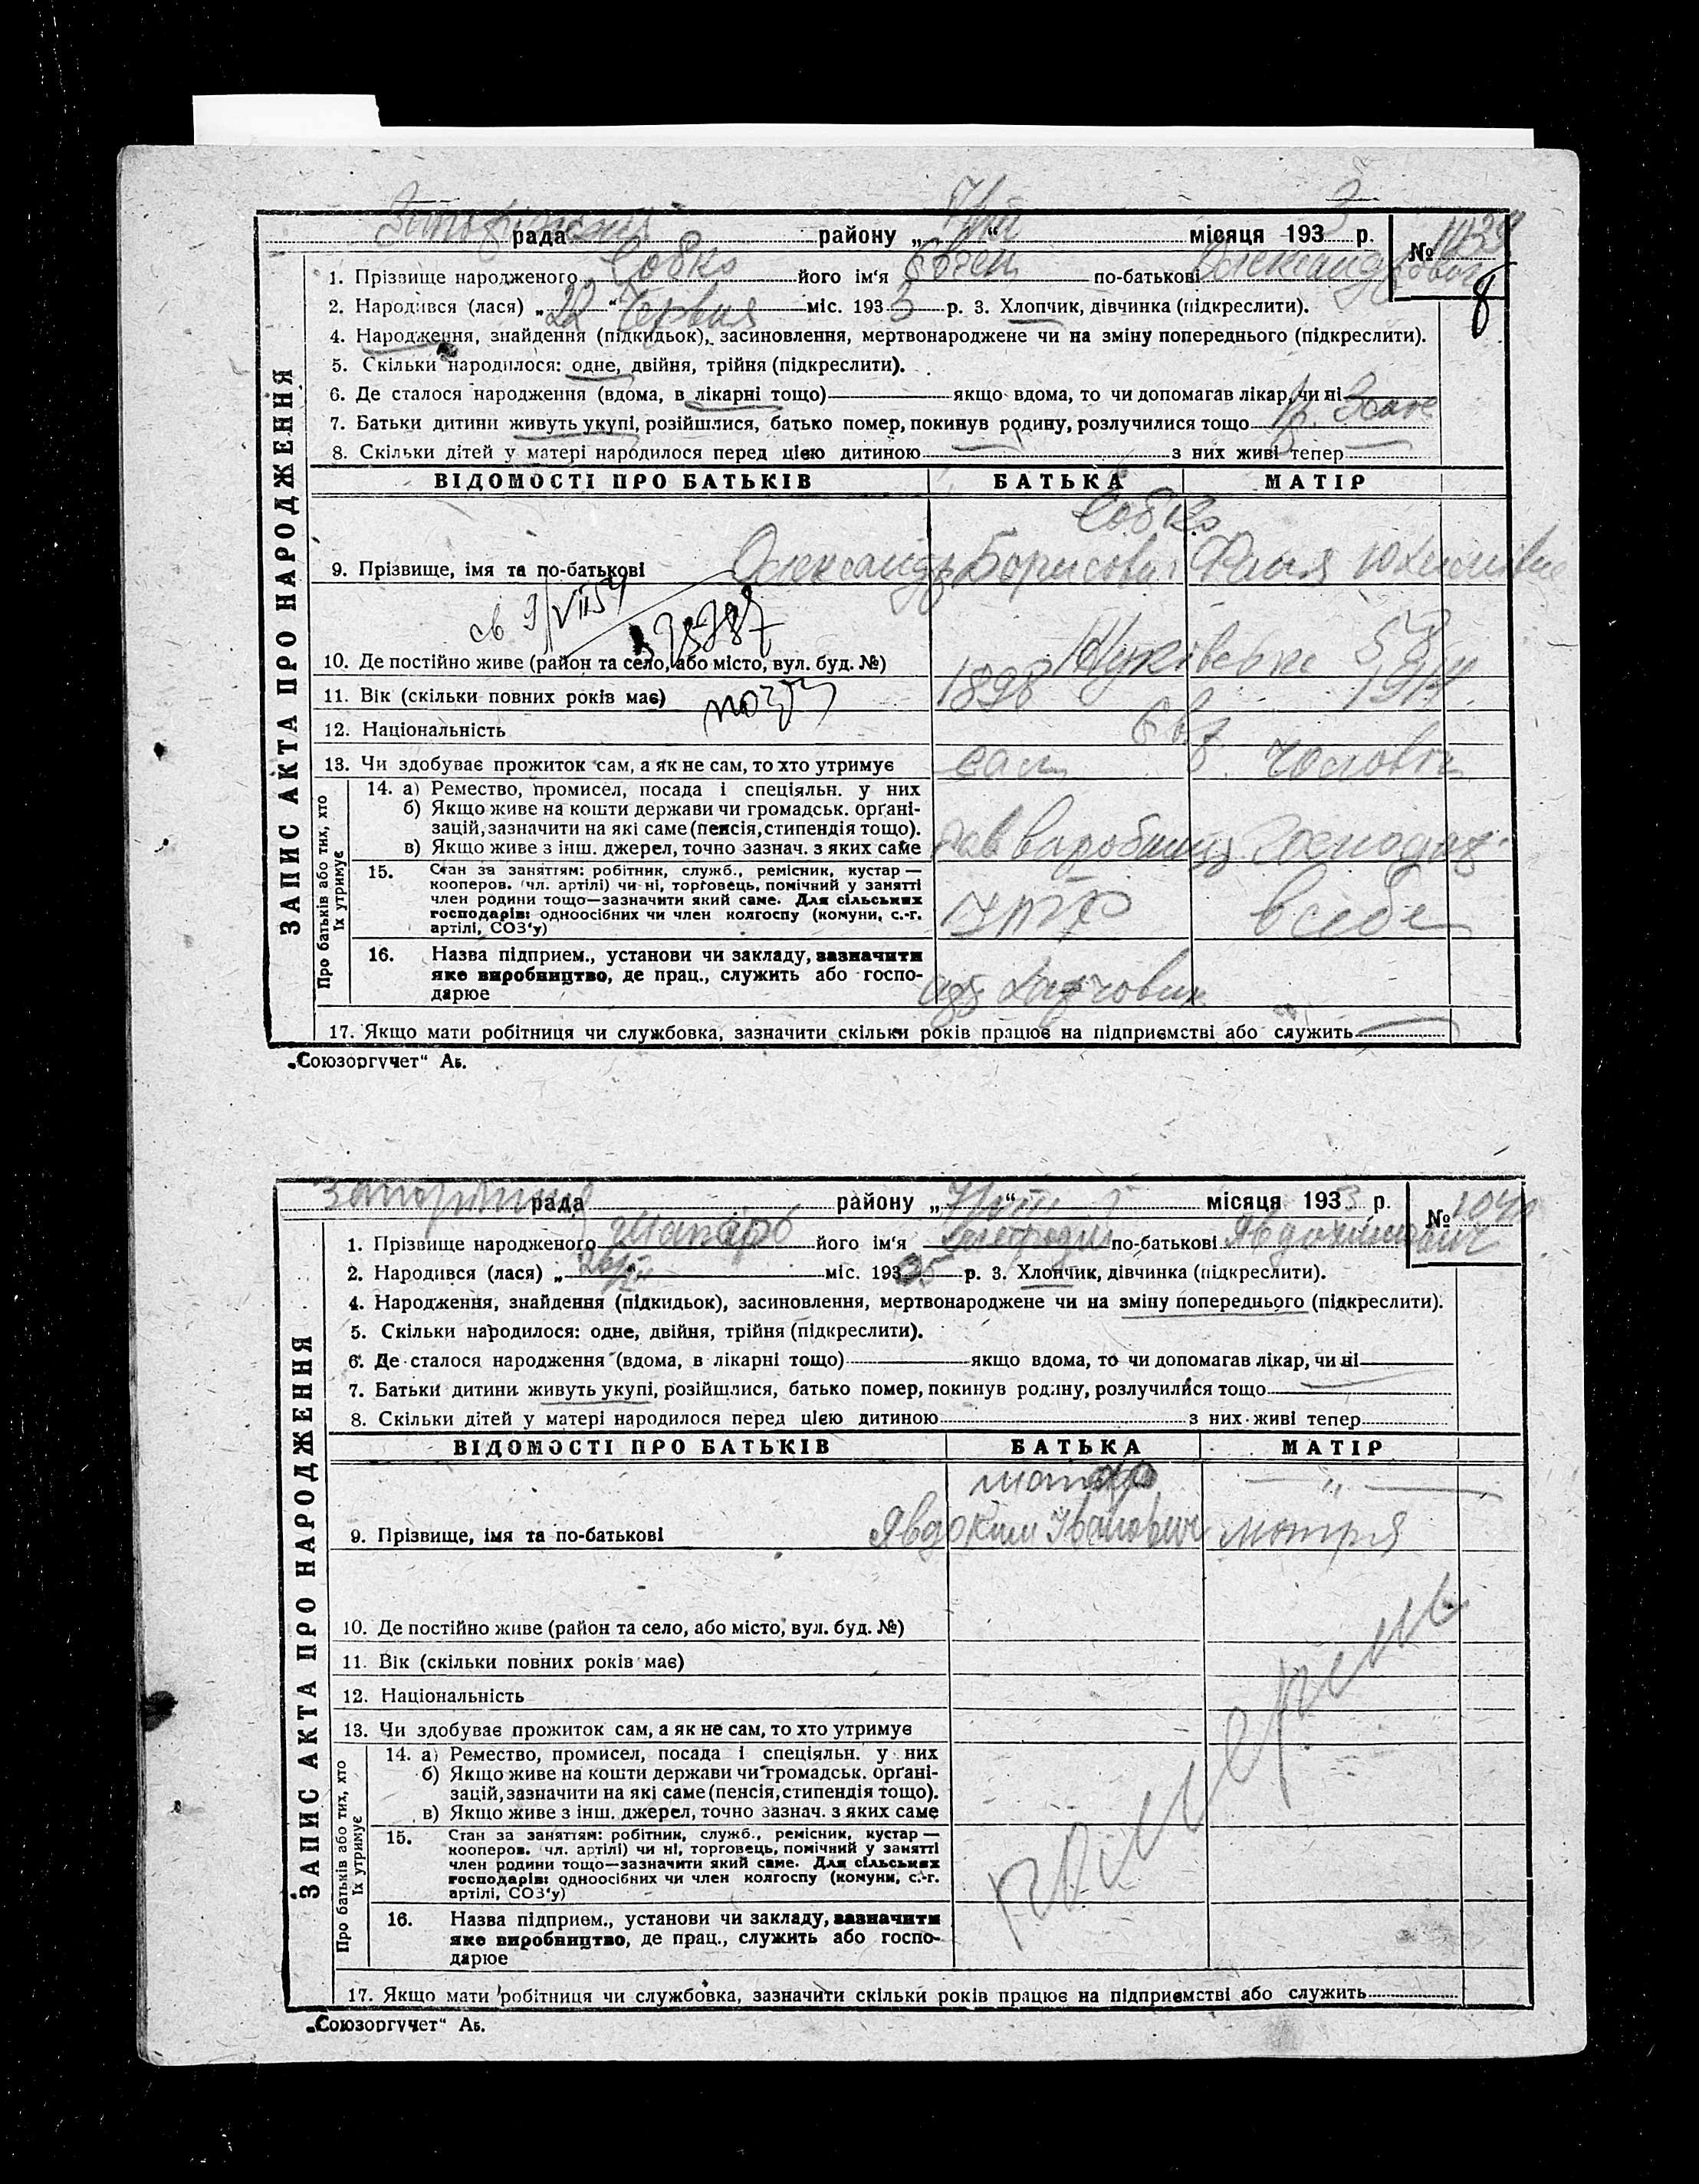 рада району „ “ місяця 193 3 р. №
1. Прізвище народженого Собко його ім'я Євген по-батькові Олександрович
8
2. Народився (лася) „22“ Червня міс. 1933 р. 3. Хлопчик, дівчинка (підкреслити).
4. Народження, знайдення (підкидьок), засиновлення, мертвонароджене чи на зміну попереднього (підкреслити).
5. Скільки народилося: одне, двійня, трійня (підкреслити).
6. Де сталося народження (вдома, в лікарні тощо) якщо вдома, то чи допомагав лікар, чи ні
7. Батьки дитини живуть укупі, розійшлися, батько помер, покинув родину, розлучилися тощо
8. Скільки дітей у матері народилося перед цією дитиною з них живі тепер
ЗАПИС АКТА ПРО НАРОДЖЕННЯ
ВІДОМОСТІ ПРО БАТЬКІВ БАТЬКА МАТІР
Собко
9. Прізвище, імя та по-батькові Олександр Борисович
10. Де постійно живе (район та село, або місто, вул. буд. №)
11. Вік (скільки повних років має) 1898 1914
12. Національність Євр.
13. Чи здобуває прожиток сам, а як не сам, то хто утримує сам чоловік
Про батьків або тих, хто їх утримує
14. а) Ремество, промисел, посада і спеціяльн. у них
б) Якщо живе на кошти держави чи громадськ. орґані-
зацій, зазначити на які саме (пенсія, стипендія тощо).
в) Якщо живе з інш. джерел, точно зазнач. з яких саме
15. Стан за заняттям: робітник, служб., ремісник, кустар —
кооперов. (чл. артілі) чи ні, торговець, помічний у занятті
член родини тощо—зазначити який саме. Для сільських
господарів: одноосібних чи член колгоспу (комуни, с.-г.
артілі, СОЗ'у)
ІТР в себе
16. Назва підприєм., установи чи закладу, зазначити
яке виробництво, де прац., служить або госпо-
дарює
17. Якщо мати робітниця чи службовка, зазначити скільки років працює на підприємстві або служить
„Союзоргучет“ Аб.
рада району „ “ місяця 1933 р. №
1. Прізвище народженого Шапар його ім'я по-батькові Явдокимович
2. Народився (лася) „ “ міс. 193 р. 3. Хлопчик, дівчинка (підкреслити).
4. Народження, знайдення (підкидьок), засиновлення, мертвонароджене чи на зміну попереднього (підкреслити).
5. Скільки народилося: одне, двійня, трійня (підкреслити).
6. Де сталося народження (вдома, в лікарні тощо) якщо вдома, то чи допомагав лікар, чи ні
7. Батьки дитини живуть укупі, розійшлися, батько помер, покинув родину, розлучилися тощо
8. Скільки дітей у матері народилося перед цією дитиною з них живі тепер
ЗАПИС АКТА ПРО НАРОДЖЕННЯ
ВІДОМОСТІ ПРО БАТЬКІВ БАТЬКА МАТІР
Шапар — „ —
9. Прізвище, імя та по-батькові Явдоким Іванович Мотря
10. Де постійно живе (район та село, або місто, вул. буд. №)
11. Вік (скільки повних років має)
12. Національність
13. Чи здобуває прожиток сам, а як не сам, то хто утримує
Про батьків або тих, хто їх утримує
14. а) Ремество, промисел, посада і спеціяльн. у них
б) Якщо живе на кошти держави чи громадськ. орґані-
зацій, зазначити на які саме (пенсія, стипендія тощо).
в) Якщо живе з інш. джерел, точно зазнач. з яких саме
15. Стан за заняттям: робітник, служб., ремісник, кустар —
кооперов. (чл. артілі) чи ні, торговець, помічний у занятті
член родини тощо—зазначити який саме. Для сільських
господарів: одноосібних чи член колгоспу (комуни, с.-г.
артілі, СОЗ'у)
16. Назва підприєм., установи чи закладу, зазначити
яке виробництво, де прац., служить або госпо-
дарює
17. Якщо мати робітниця чи службовка, зазначити скільки років працює на підприємстві або служить
„Союзоргучет“ Аб.